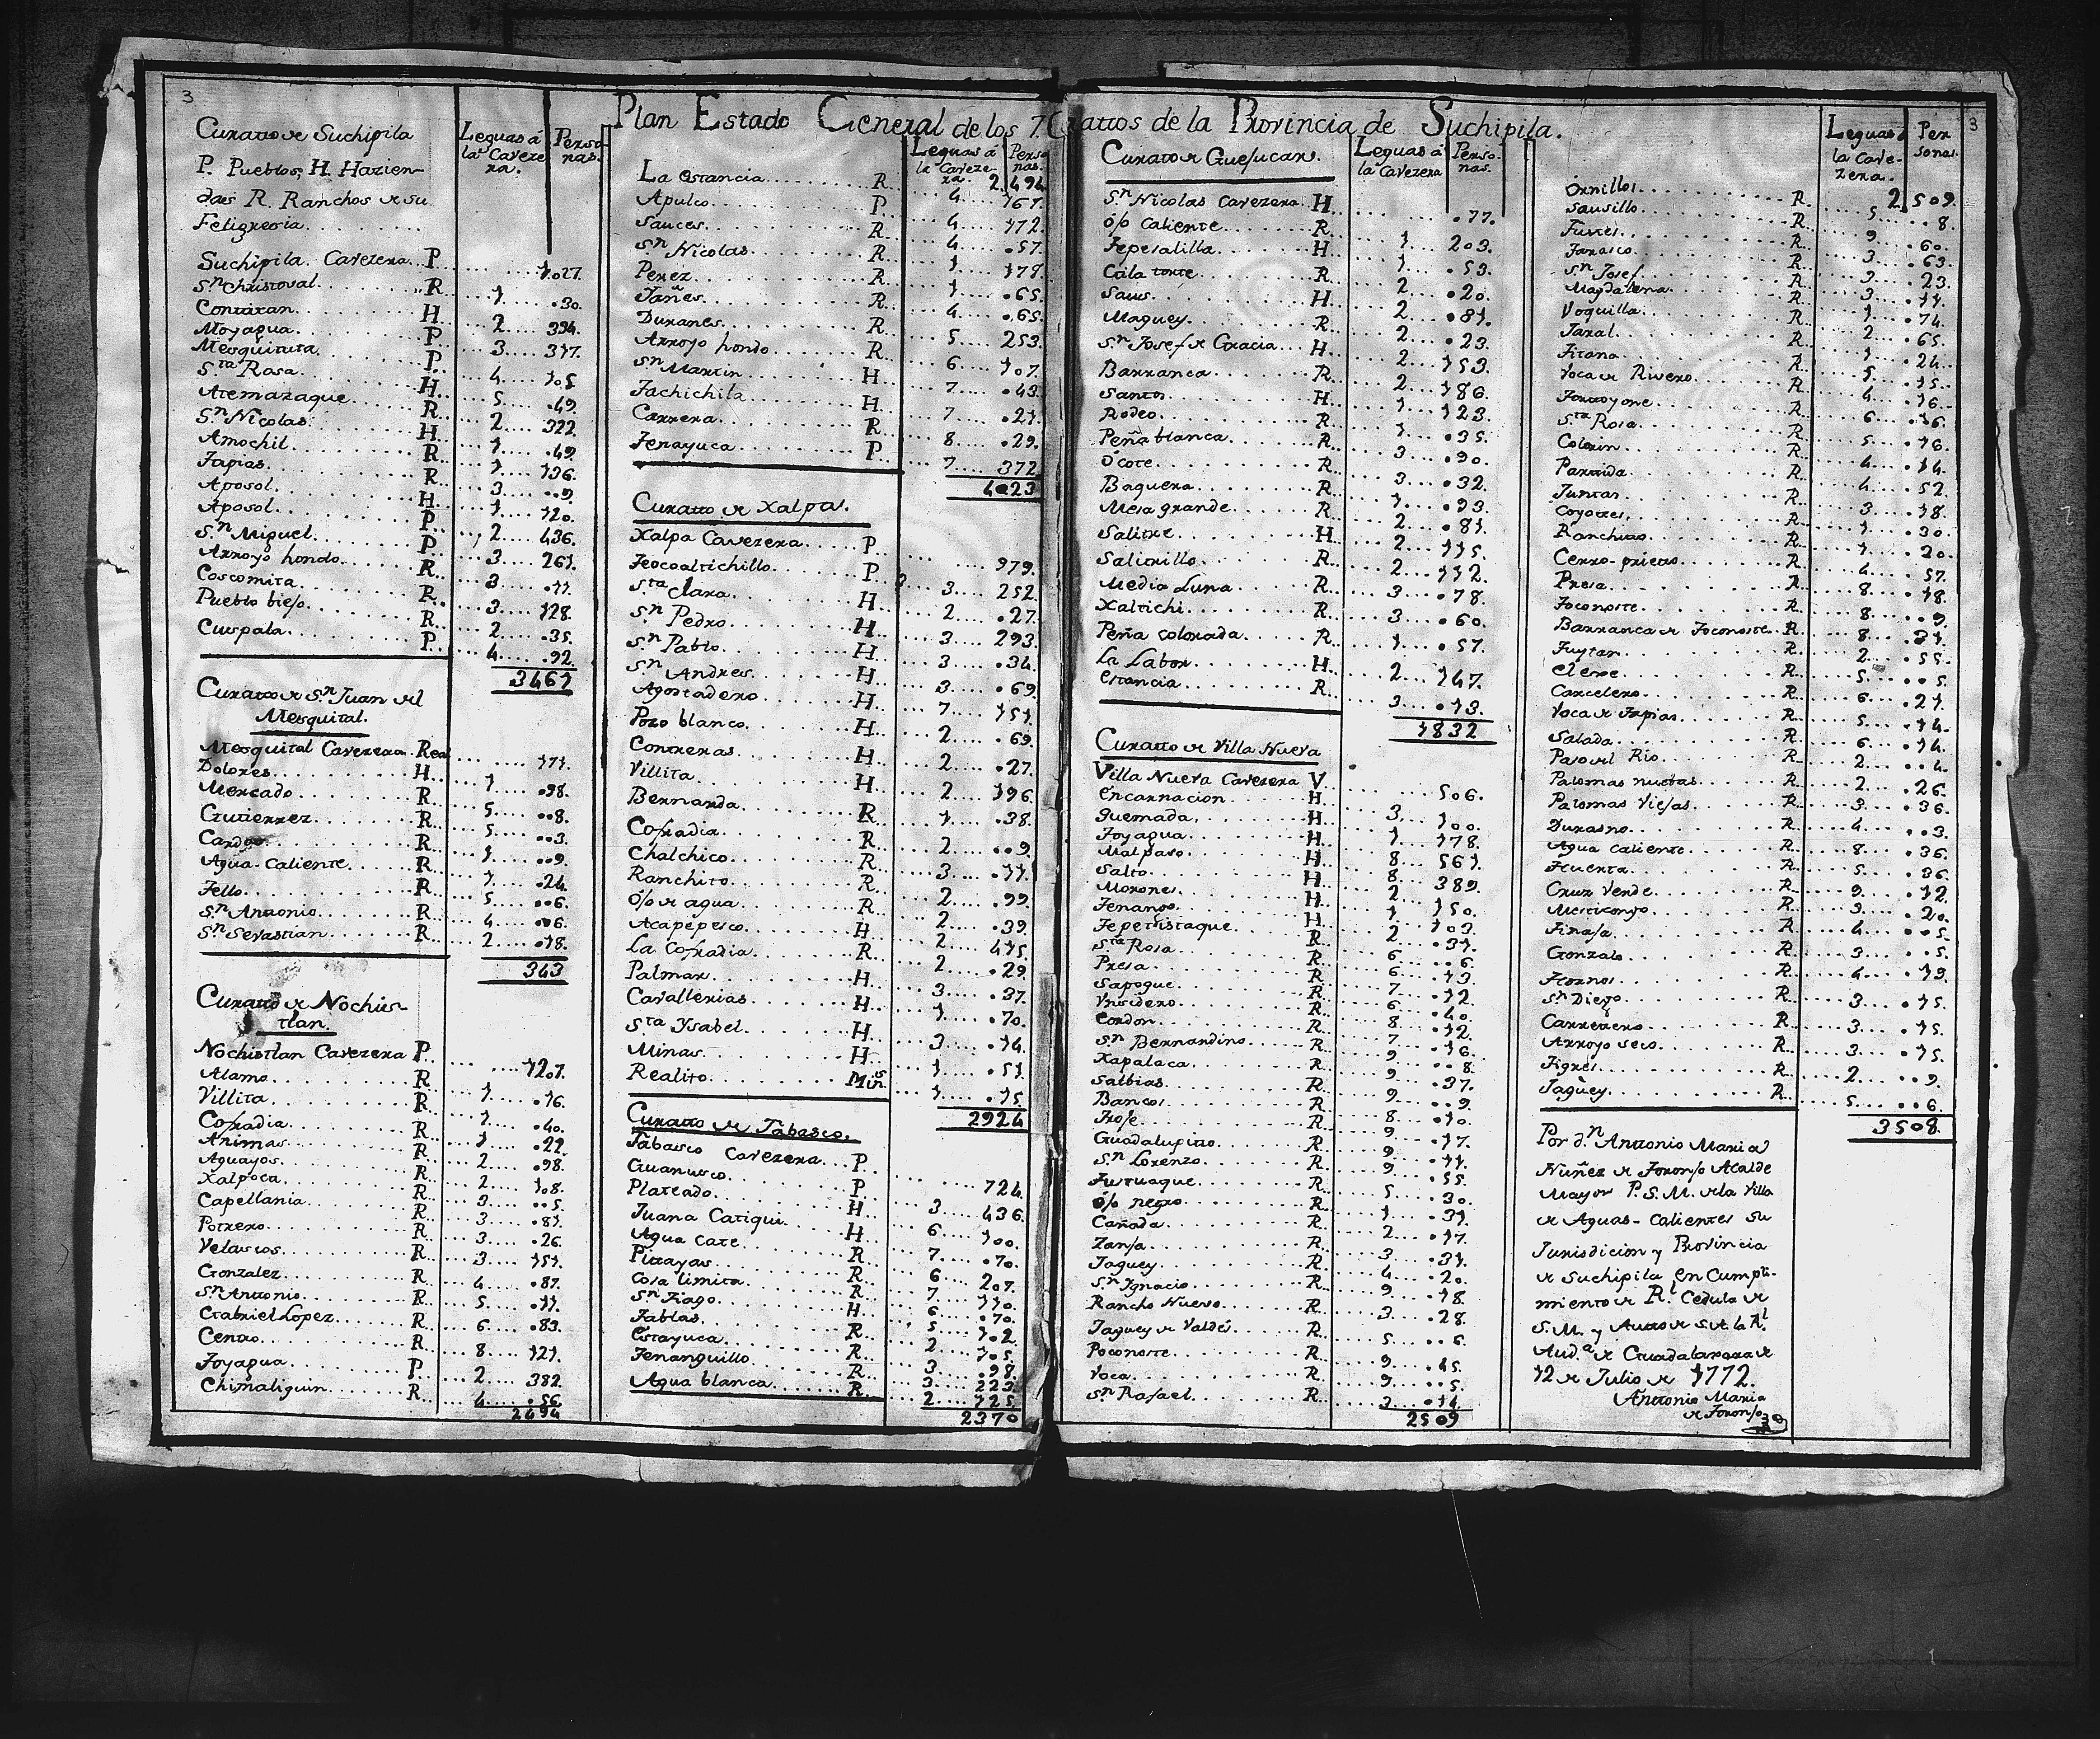 Plan Estado General de los 7. Curattos de la Provincia de Suchipila.
3
Curatto de Suchipila
P. Pueblos, H. Hazien-
das R. Ranchos de su
Feligresia
Leguas á la Caveze ra. Perso nas.
Suchipila Cavezera P. 1027.
Sn Christoval R. 1 30.
Contitan H. 2 394.
Moyagua P. 3 317.
Mesquituta P. 4 105
Sta Rosa H. 5 49.
Atemazaque R. 2 322
Sn Nicolas H. 1 49.
Amochil R. 1 136.
Tapias R. 3 9.
Aposol H. 1 120.
Aposol P. 2 436.
Sn Miguel P. 3 261.
Arroyo hondo R. 3 11.
Coscomita R. 3 128.
Pueblo biejo R. 2 35.
Cuspala P. 4 92.
3461
Curatto de Sn Juan del
Mesquital.
Mesquital Cavezera Real 171.
Dolores H. 1 98.
Mercado R. 5 8.
Gutierrez R. 5 3.
Cardos R. 1 9.
Agua Caliente R. 1 24.
Tello R. 5 6.
Sn Antonio R. 4 6.
Sn Sevastian R. 2 18.
343
Curatto de Nochis-
tlan.
Nochistlan Cavezera P. 1207.
Alamo R. 1 16.
Villita R. 1 40.
Cofradia R. 1 22.
Animas R. 2 98.
Aguayos R. 2 108.
Xalpoca R. 3 5.
Capellania R. 3 81.
Potrero R. 3 26.
Velascos R. 3 151.
Gonzalez R. 4 81.
Sn Antonio R. 5 11.
Gabriel Lopez R. 6 83.
Centro R. 8 121.
Toyagua P. 2 382.
Chimaliquin R. 4 56.
2494
Leguas á la Caveze ra. Perso nas.
2,494
La estancia R. 4 161.
Apulco P. 4 172.
Sauces R. 4 57.
Sn Nicolas R. 1 178.
Perez R. 1 65.
Yañes R. 4 65.
Duranes R. 5 253.
Arroyo hondo R. 6 107.
Sn Martin H. 7 43.
Tachichila H. 7 21.
Carrera R. 8 29.
Tenayuca P. 7 372
4023
Curatto de Xalpa.
Xalpa Cavezera P. 979.
Teocoaltichillo P. 3 252.
Sta Clara H. 2 27.
Sn Pedro H. 3 293.
Sn Pablo H. 3 34.
Sn Andres H. 3 69.
Agostadero H. 7 151.
Pozo blanco H. 2 69.
Contreras H. 2 27.
Villita H. 2 196.
Bernarda R. 1 38.
Cofradia R. 2 9.
Chalchico R. 3 11.
Ranchito R. 2 99.
ôjo de agua R. 2 39.
Acapepesco H. 2 415.
La Cofradia R. 2 29.
Palmar H. 3 37.
Cavallerias H. 1 70.
Sta Ysabel H. 3 14.
Minas H. 1 51.
Realito Mins 1 15.
2924
Curatto de Tabasco.
Tabasco Cavezera P. 724.
Guanusco P. 3 436.
Plateado H. 6 100.
Juana Catiqui H. 7 70.
Agua Cate R. 6 207.
Pitayas R. 7 110.
Cosa limita R. 6 70.
Sn Tiago H. 5 102
Tablas R. 2 105.
Estayuca R. 3 98.
Tenanguillo R. 3 223.
Agua blanca R. 2 125.
2370
Curatto de Guejucar.
Leguas á la Cavezera Perso nas.
Sn Nicolas Cavezera H. 77.
ôjo Caliente R. 1 203.
Tepesalilla H. 1 53.
Cala torte R. 2 20.
Saus H. 2 81.
Maguey R. 2 23.
Sn Josef de Gracia H. 2 153.
Barranca R. 2 186.
Santos H. 1 123.
Rodeo R. 1 35.
Peña blanca R. 3 90.
Ocote R. 3 32.
Baquera R. 1 93.
Mesa grande R. 2 81.
Salitre H. 2 115.
Salitrillo R. 2 112.
Media Luna R. 3 78.
Xaltichi R. 3 60.
Peña colorada R. 1 57.
La Labor H. 2 147.
Estancia R. 3 13.
1832
Curatto de Villa Nueva
Villa Nueva Cavezera V. 506.
Encarnacion H. 3 100.
Quemada H. 1 178.
Joyagua H. 8 561.
Malpaso H. 8 389.
Salto H. 2 150.
Morones H. 1 103.
Tenango H. 2 31.
Tepetistaque R. 6 6.
Sta Rosa R. 6 13.
Presa R. 7 12
Sapoque R. 6 40.
Ynsidero R. 8 12.
Cordon R. 7 16.
Sn Bernardino R. 9 8.
Xapalaca R. 9 37.
Salbias R. 9 9.
Bancos R. 8 10.
Troje R. 9 17.
Guadalupito R. 9 11.
Sn Lorenzo R. 9 55.
Tutuaque R. 5 30.
ôjo negro R. 1 31.
Cañada R. 2 17.
Zanja R. 3 31.
Jaguey R. 4 20.
Sn Ygnacio R. 9 18.
Rancho Nuevo R. 3 28.
Jaguey de Valdés R. 5 6.
Poconoste R. 9 45.
Voca R. 9 5.
Sn Rafael R. 3 14.
2509
Leguas á la Cave- zera. Per sonas.
3
2,509.
Ornillos R. 5 8.
Sausillo R. 9 60.
Fustes R. 3 63.
Tarasco R. 3 23.
Sn Josef R. 3 11.
Magdalena R. 1 74.
Voquilla R. 2 65.
Jaral R. 1 24.
Jitana R. 5 15.
Voca de Rivero R. 4 16.
Torroyone R. 6 16.
Sta Rosa R. 5 16.
Colorin R. 4 14.
Partida R. 4 52.
Juntas R. 3 18.
Coyotes R. 1 30.
Ranchito R. 1 20.
Cerro-prieto R. 4 57.
Presa R. 8 18.
Joconoste R. 8 9.
Barranca de Joconoste R. 8 31.
Tuytan R. 2 55.
El eme R. 5 5.
Carcelero R. 6 21.
Voca de Tapias R. 5 14.
Salada R. 6 14.
Paso del Rio R. 2 4.
Palomas nuebas R. 2 26.
Palomas Viejas R. 3 36.
Durasno R. 4 3.
Agua Caliente R. 8 36.
Huerta R. 5 36.
Cruz Verde R. 9 12.
Mesticonjo R. 3 20.
Tinaja R. 4 5.
Gonzalo R. 3 5.
Hornos R. 4 19.
Sn Diego R. 3 15.
Carretero R. 3 15.
Arroyo seco R. 3 15.
Tigres R. 2 9.
Jagüey R. 5 6.
3508.
Por dn Antonio Maria
Nuñez de Toronjo Alcalde
Mayor P. S. M. de la Villa
de Aguas-Calientes su
Jurisdicion y Provincia
de Suchipila en Cumpli-
miento de Rl Cedula de
S. M. y Autto de S A. la Rl
Auda de Guadalaxara de
12 de Julio de 1772.
Antonio Maria
de Toronjo